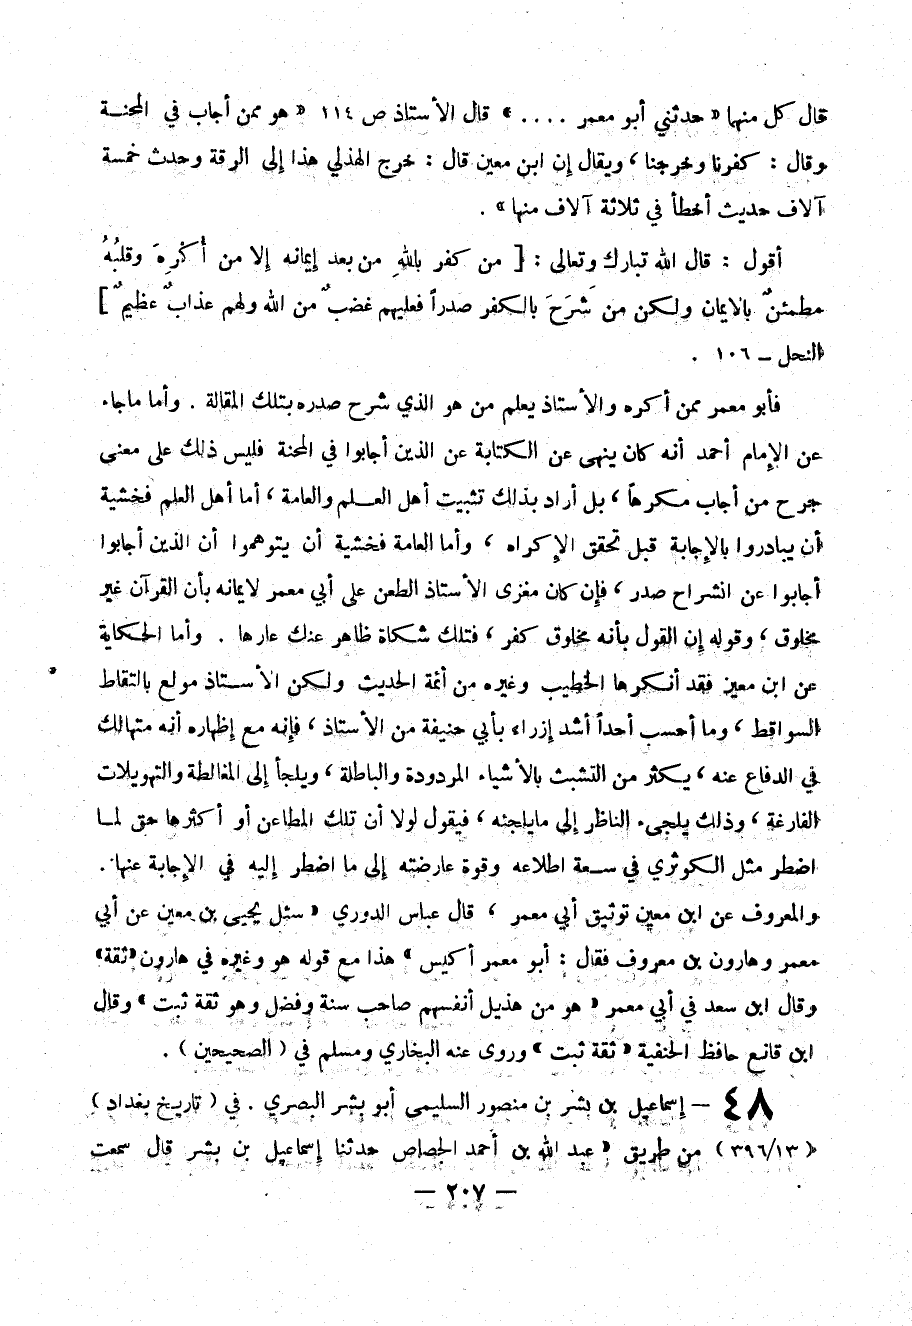 قال كل منهما « حدثني أبو معمر .... » قال الأستاذ ص ١١٤ « هو ممن أجاب في المحنـة
وقال : كفرنا وخرجنا ، ويقال إن ابن معين قال : خرج الهذلي هذا إلى الرقة وحدث خمسة
آلاف حديث أخطأ في ثلاثة آلاف منها » .
أقول : قال الله تبارك وتعالى : [ من كفر باللهِ من بعد إيمانه إلا من أُكْرِهَ وقلبُهُ
مطمئنٌ بالايمان ولكن من شَرَحَ بالكفر صدراً فعليهم غضبٌ من الله ولهم عذابٌ عظيمٌ ]
النحل ــ ١٠٦ .
فأبو معمر ممن أكره والأستاذ يعلم من هو الذي شرح صدره بتلك المقالة . وأما ماجاء
عن الإمام أحمد أنه كان ينهى عن الكتابة عن الذين أجابوا في المحنة فليس ذلك على معنى
جرح من أجاب مكرهاً ، بل أراد بذلك تثبيت أهل العـلم والعامة ، أما أهل العلم فخشية
أن يبادروا بالإجابة قبل تحقق الإكراه ، وأما العامة فخشية أن يتوهموا أن الذين أجابوا
أجابوا عن انشراح صدر ، فإن كان مغزى الأستاذ الطعن على أبي معمر لايمانه بأن القرآن غير
مخلوق ، وقوله إن القول بأنه مخلوق كفر ، فتلك شكاة ظاهر عنك عارها . وأما الحكاية
عن ابن معين فقد أنكرها الخطيب وغيره من أئمة الحديث ولكن الأسـتاذ مولع بالتقاط
السواقط ، وما أحسب أحداً أشد إزراء بأبي حنيفة من الأستاذ ، فإنه مع إظهاره أنه متهالك
في الدفاع عنه ، يكثر من التشبث بالأشياء المردودة والباطلة ، ويلجأ إلى المغالطة والتهويلات
الفارغة ، وذلك يلجىء الناظر إلى مايلجئه ، فيقول لولا أن تلك المطاعن أو أكثرها حق لمـا
اضطر مثل الكوثري في سـعة اطلاعه وقوة عارضته إلى ما اضطر إليه في الإجابة عنها .
والمعروف عن ابن معين توثيق أبي معمر ، قال عباس الدوري « سئل يحيى بن معين عن أبي
معمر وهارون بن معروف فقال : أبو معمر أكيس » هذا مع قوله هو وغيره في هارون «ثقة»
وقال ابن سعد في أبي معمر « هو من هذيل أنفسهم صاحب سنة وفضل وهو ثقة ثبت » وقال
ابن قانع حافظ الحنفية « ثقة ثبت » وروى عنه البخاري ومسلم في ( الصحيحين ) .
٤٨ – إسماعيل بن بشر بن منصور السليمى أبو بشر البصري . في ( تاريخ بغداد )
( ٣٩٦/١٣ ) من طريق « عبد الله بن أحمد الجصاص حدثنا إسماعيل بن بشر قال سمعت
— ٢٠٧ —